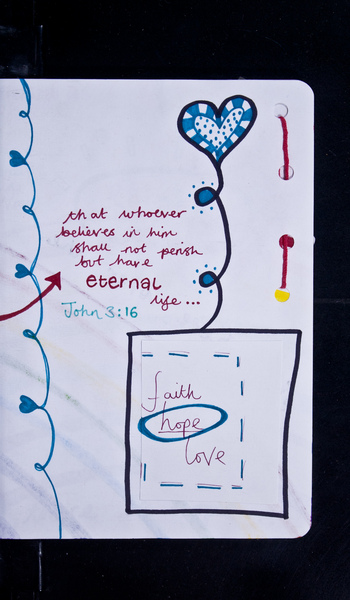 that whoever
believes in him
shall not perish
but have
eternal
life...
John 3:16
faith
hope
love